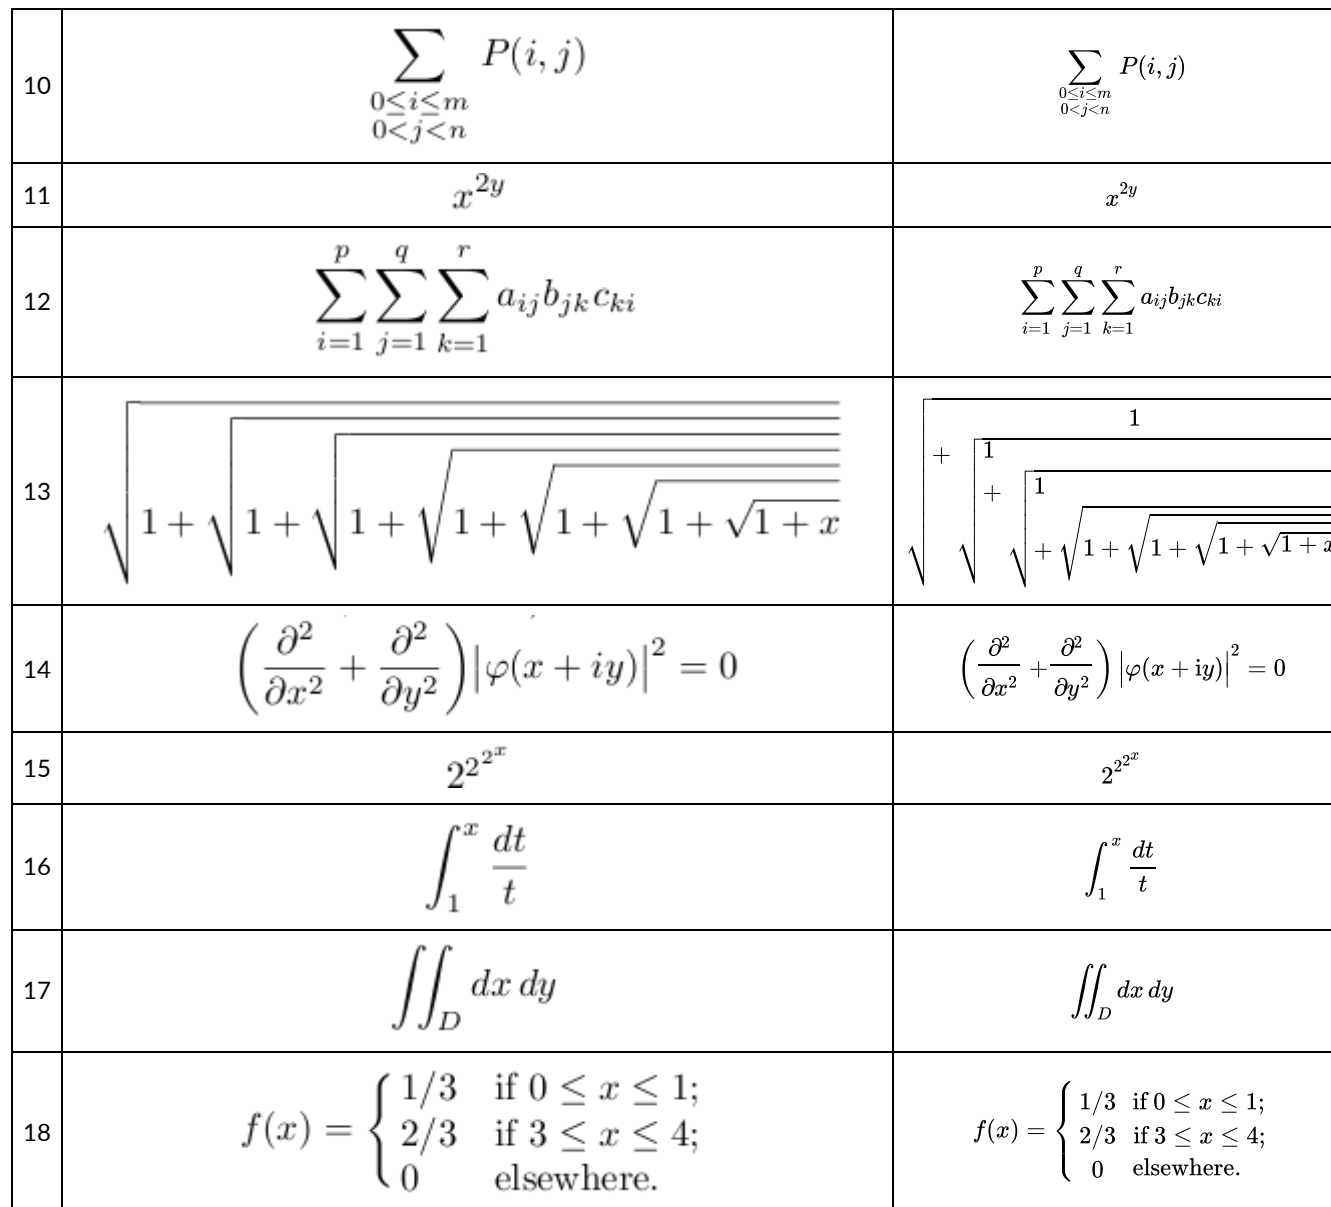 10 \sum_{\substack{0\le i\le m \\ 0<j<n}} P(i,j) \sum_{\substack{0\le i\le m \\ 0<j<n}} P(i,j)
11 x^{2y} x^{2y}
12 \sum_{i=1}^{p} \sum_{j=1}^{q} \sum_{k=1}^{r} a_{ij} b_{jk} c_{ki} \sum_{i=1}^{p} \sum_{j=1}^{q} \sum_{k=1}^{r} a_{ij} b_{jk} c_{ki}
13 \sqrt{1+\sqrt{1+\sqrt{1+\sqrt{1+\sqrt{1+\sqrt{1+\sqrt{1+x}}}}}}} \sqrt{1+\sqrt{1+\sqrt{1+\sqrt{1+\sqrt{1+\sqrt{1+\sqrt{1+x}}}}}}}
14 \left(\frac{\partial^2}{\partial x^2} + \frac{\partial^2}{\partial y^2}\right) |\varphi(x+iy)|^2 = 0 \left(\frac{\partial^2}{\partial x^2} + \frac{\partial^2}{\partial y^2}\right) |\varphi(x+iy)|^2 = 0
15 2^{2^{2^x}} 2^{2^{2^x}}
16 \int_1^x \frac{dt}{t} \int_1^x \frac{dt}{t}
17 \iint_D dx\,dy \iint_D dx\,dy
18 f(x) = \begin{cases} 1/3 & \text{if } 0 \le x \le 1; \\ 2/3 & \text{if } 3 \le x \le 4; \\ 0 & \text{elsewhere.} \end{cases} f(x) = \begin{cases} 1/3 & \text{if } 0 \le x \le 1; \\ 2/3 & \text{if } 3 \le x \le 4; \\ 0 & \text{elsewhere.} \end{cases}